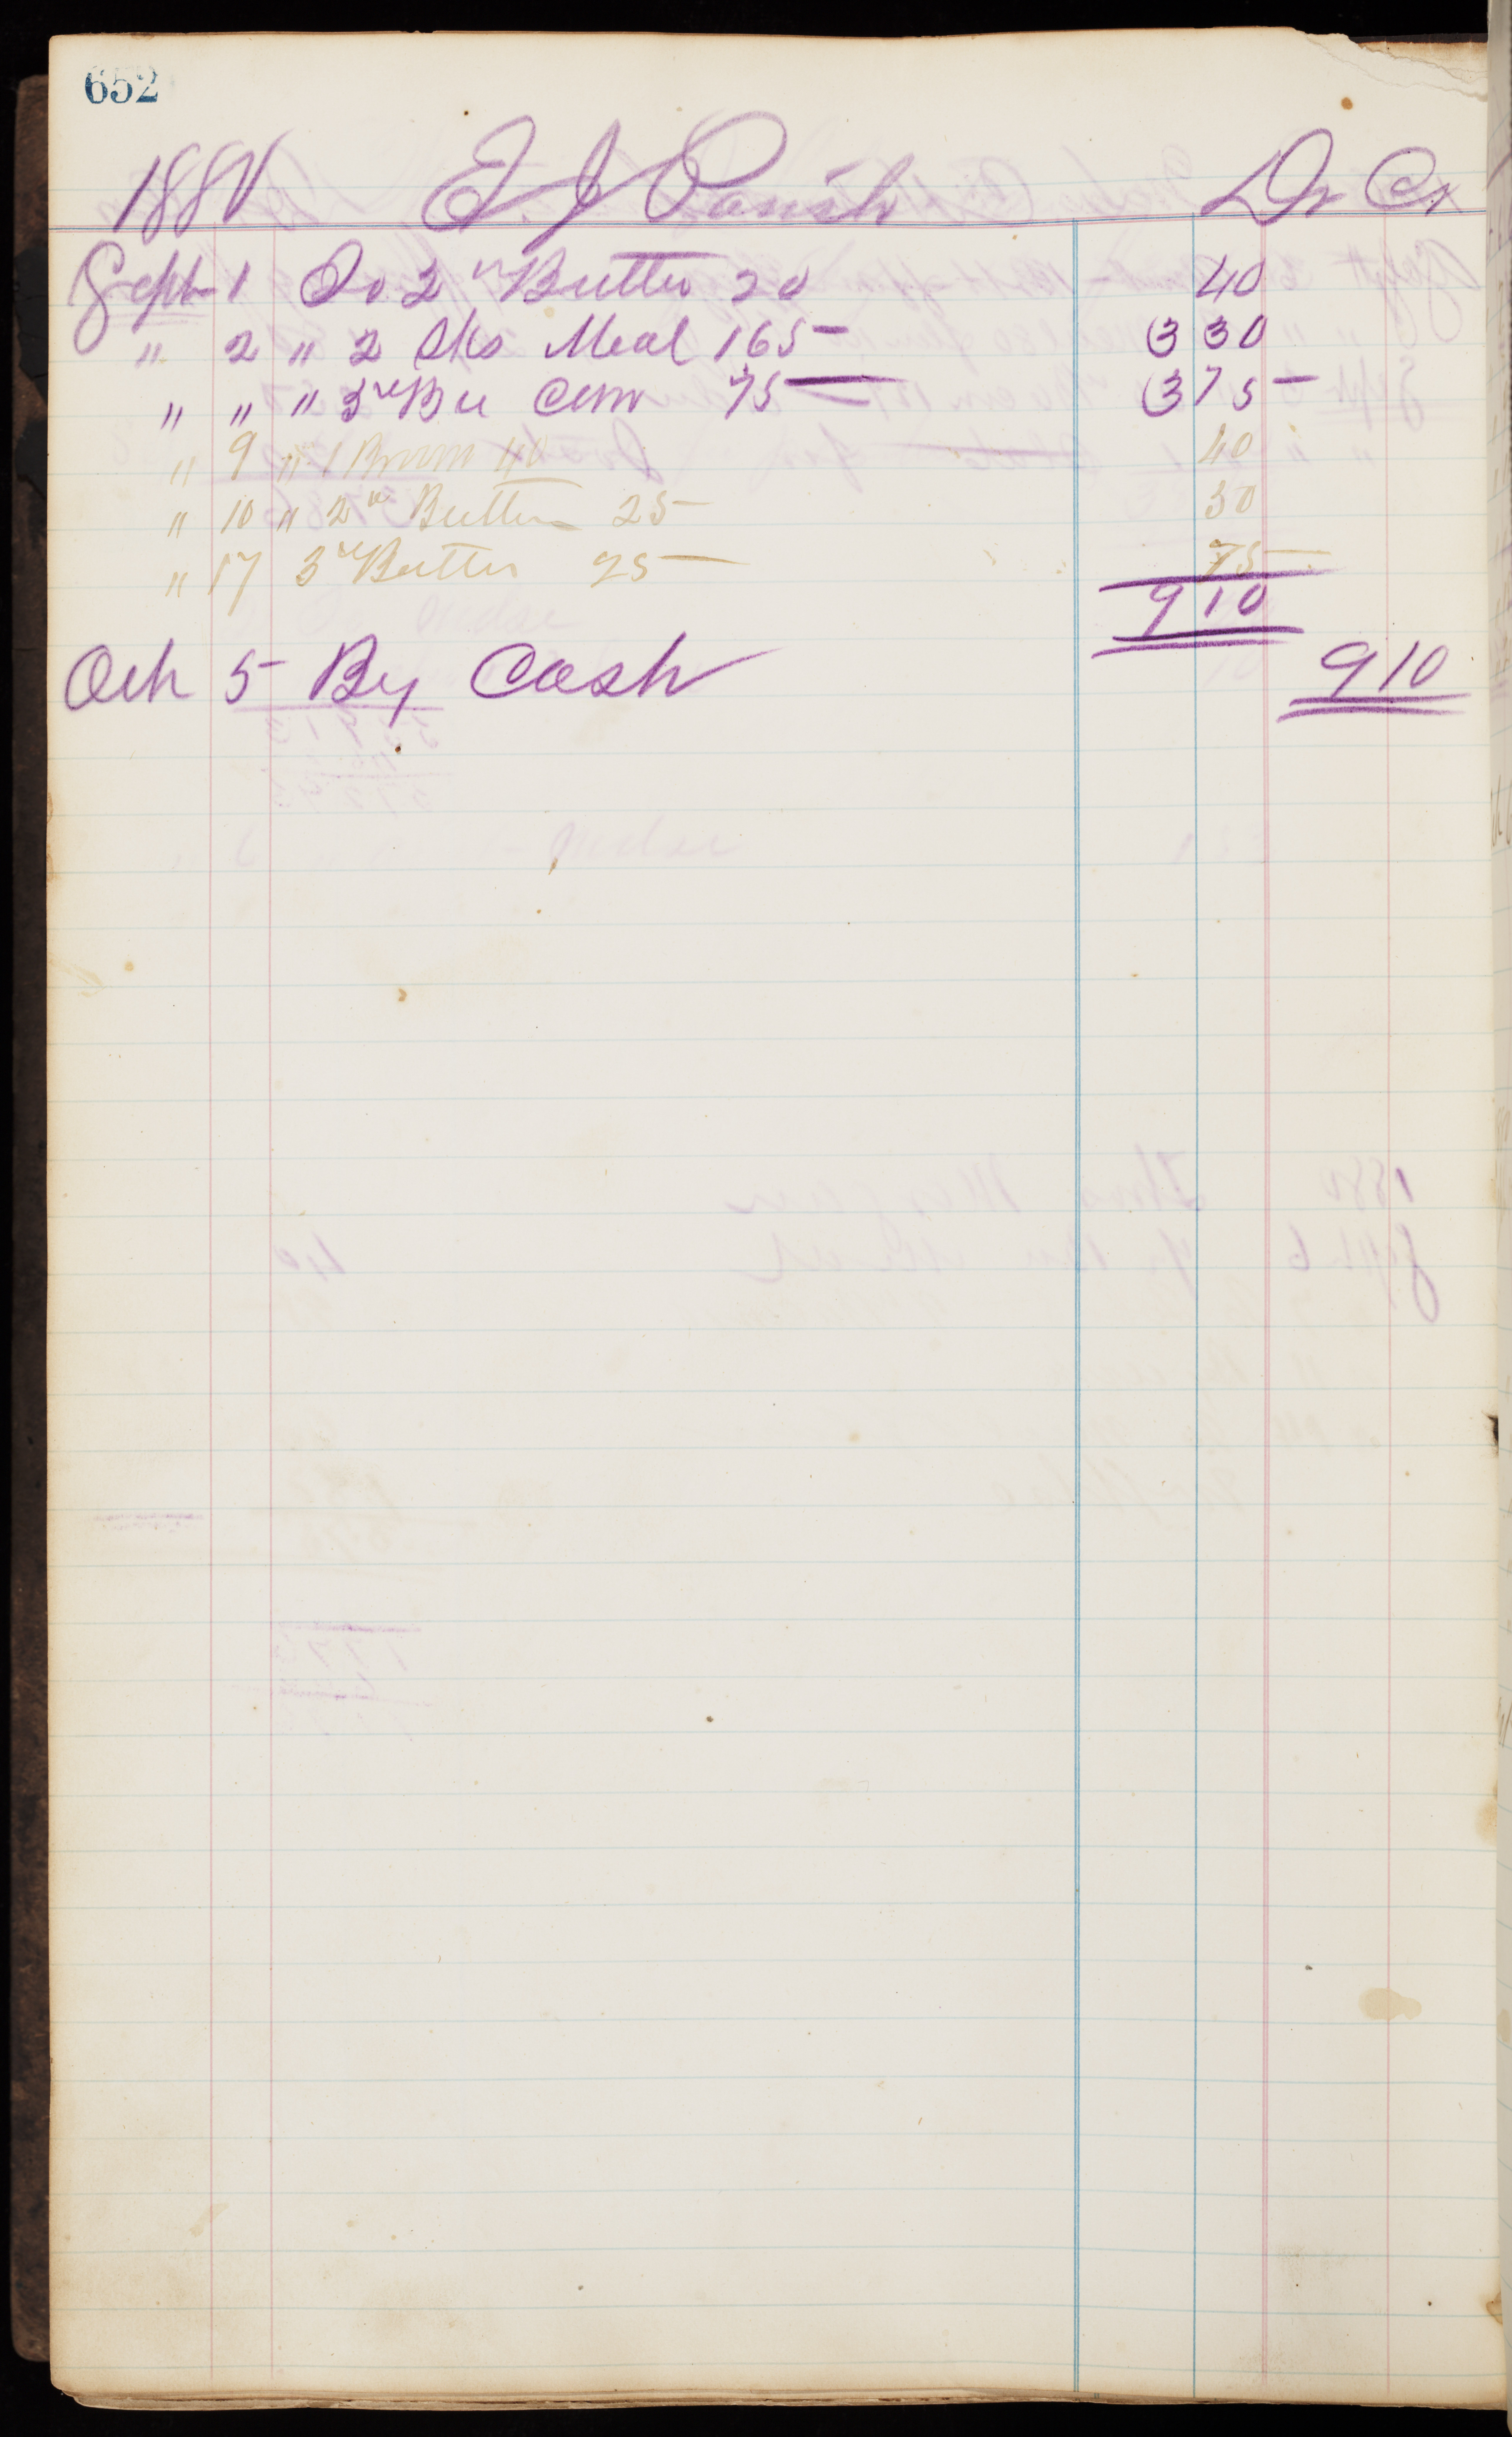 652
1880 E. J. Parish Dr Cr
Sept 1 To 2 " Butter 20 40
" 2 " 2 Sks Meal 165 3 30
" " " 5 Bu Corn 75 3 75
" 9 " 1 Broom 40 40
" 10 " 2 " Butter 25 50
" 17 3 " Butter 25 75
9 10
Oct 5 By Cash 9 10